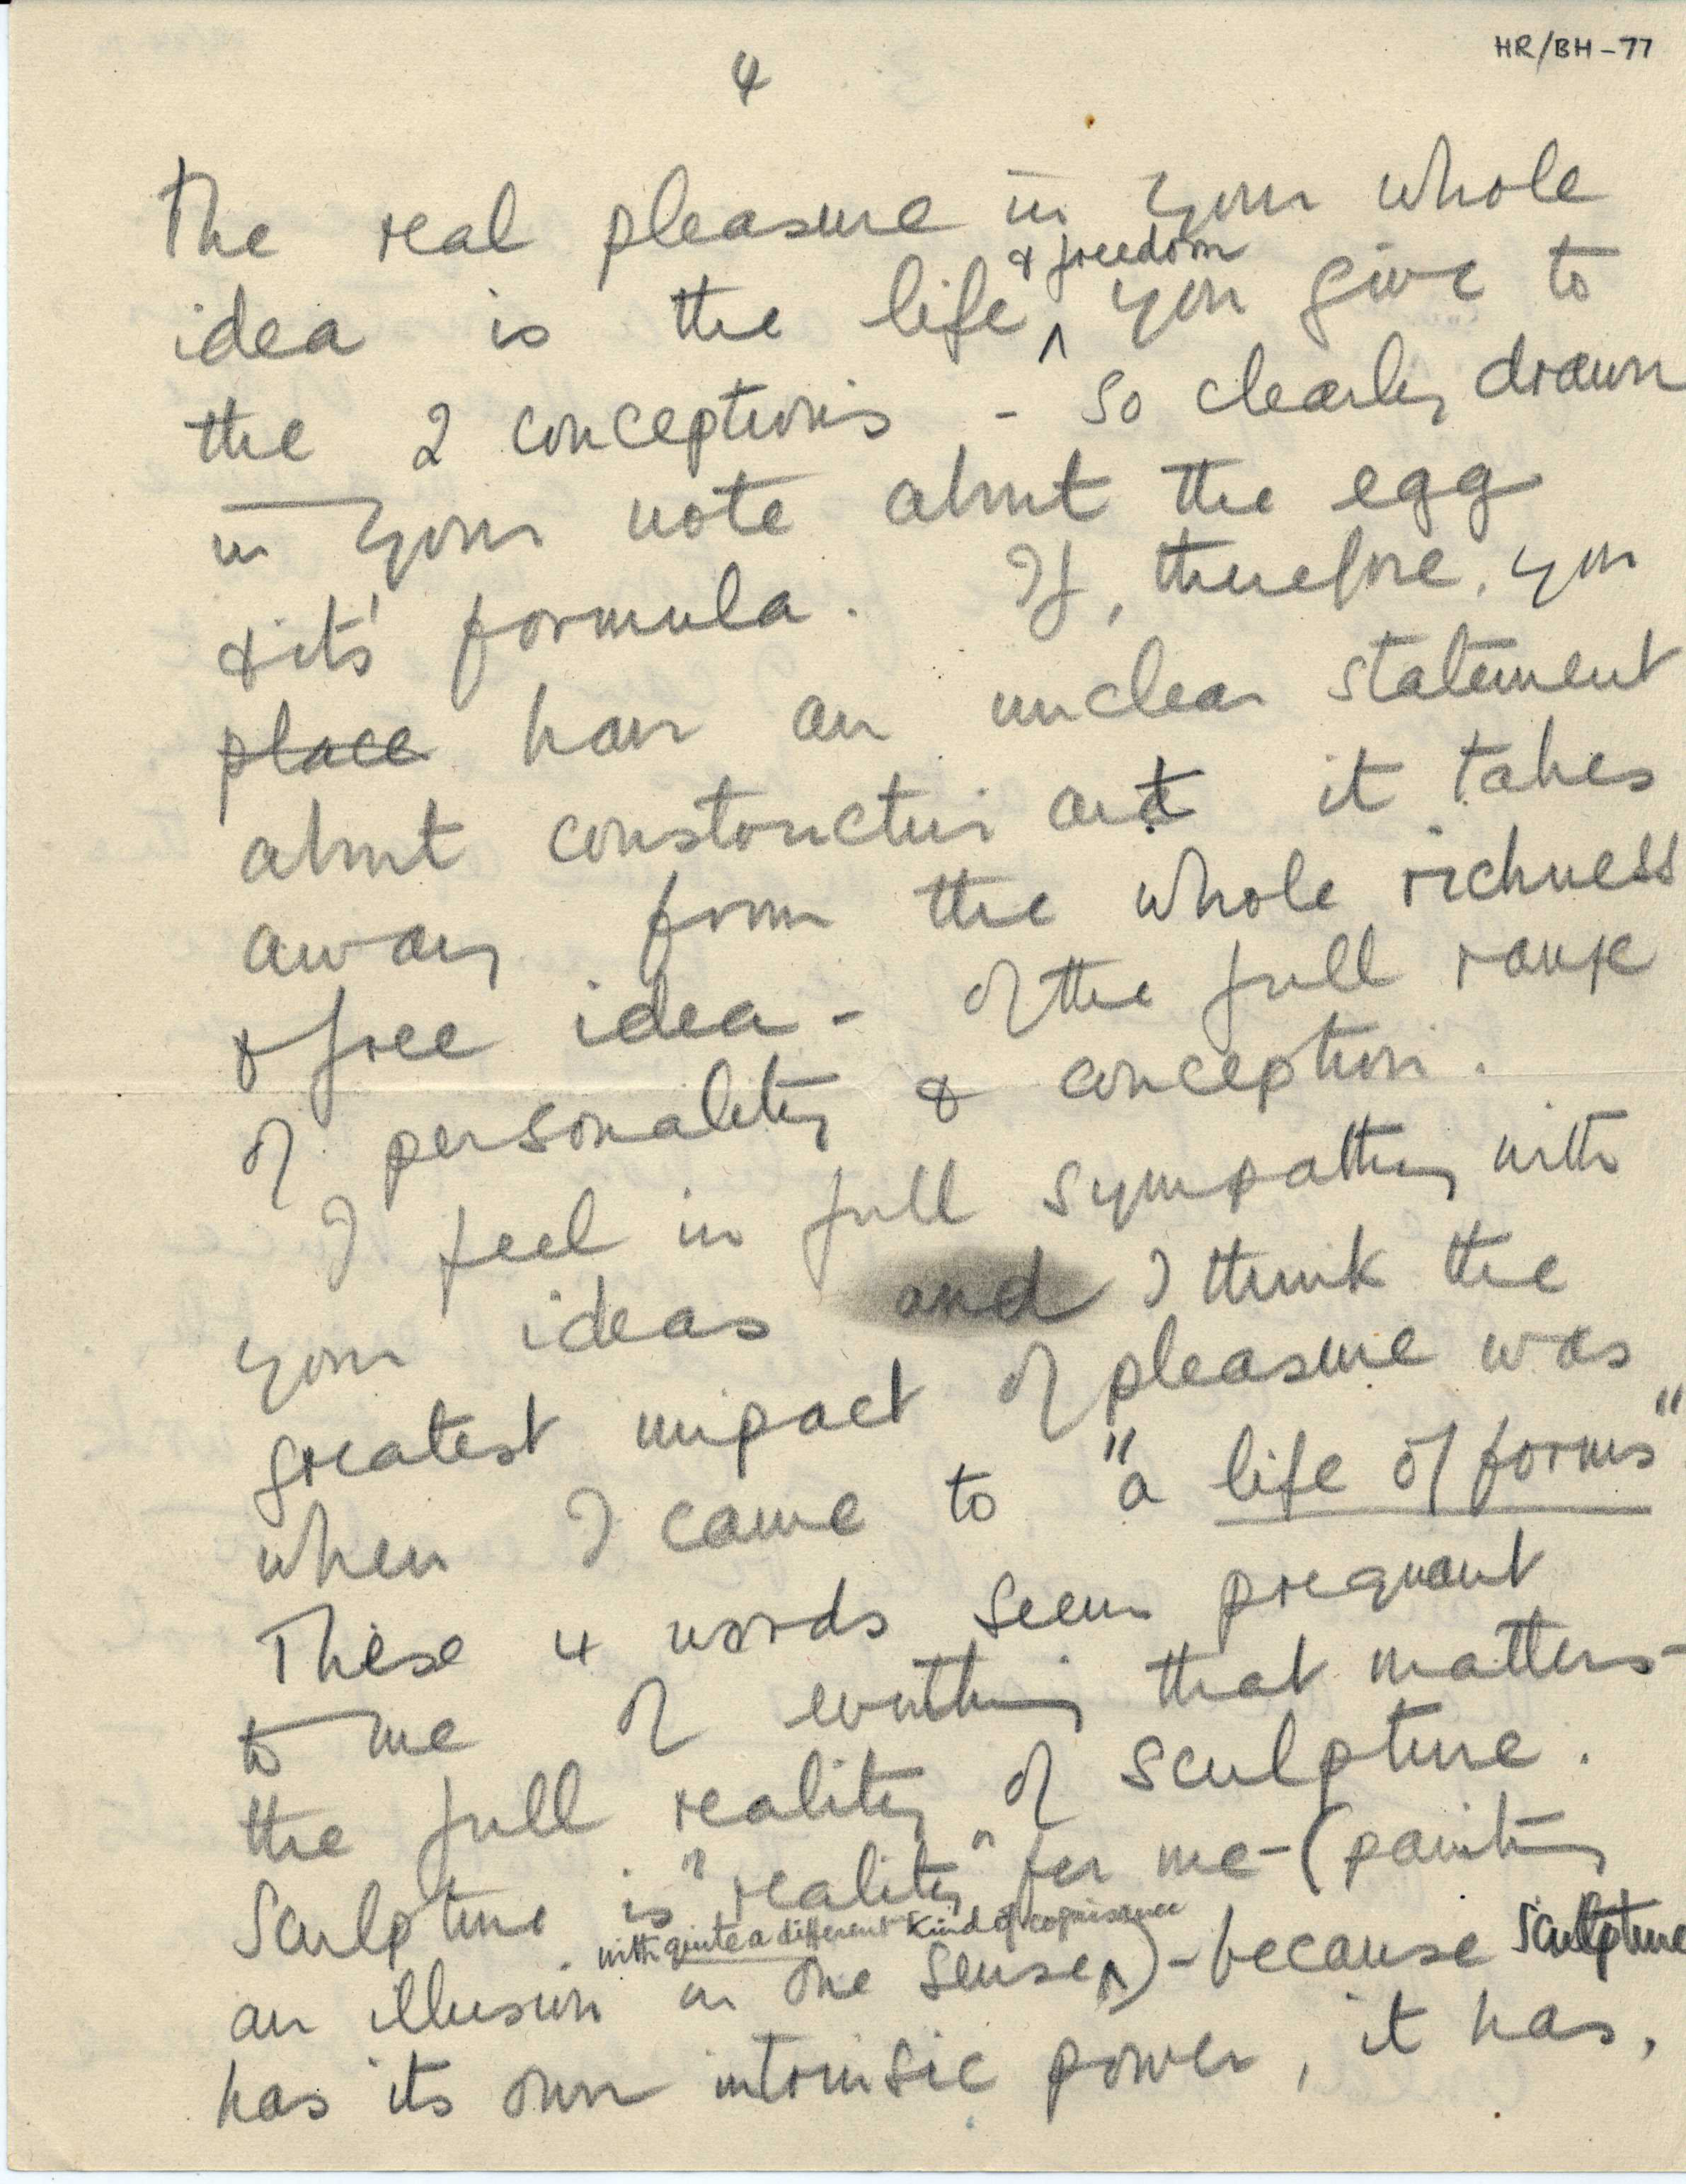 HR/BH-77
4
The real pleasure in your whole
& freedom
idea is the life ^ you give to
the 2 conceptions - so clearly drawn
in your note about the egg
& its' formula. If, therefore, you
place have an unclear statement
about constructive art it takes
away from the whole richness
& free idea - of the full range
of personality & conception.
I feel in full sympathy with
your ideas and I think the
greatest impact of pleasure was
when I came to "a life of forms"
These 4 words seem pregnant
to me of everything that matters -
the full reality of sculpture.
Sculpture is "reality" for me - (painting
with quite a different kind of cognisance
an illusion in one sense ^) - because sculpture
has its own intrinsic power, it has,